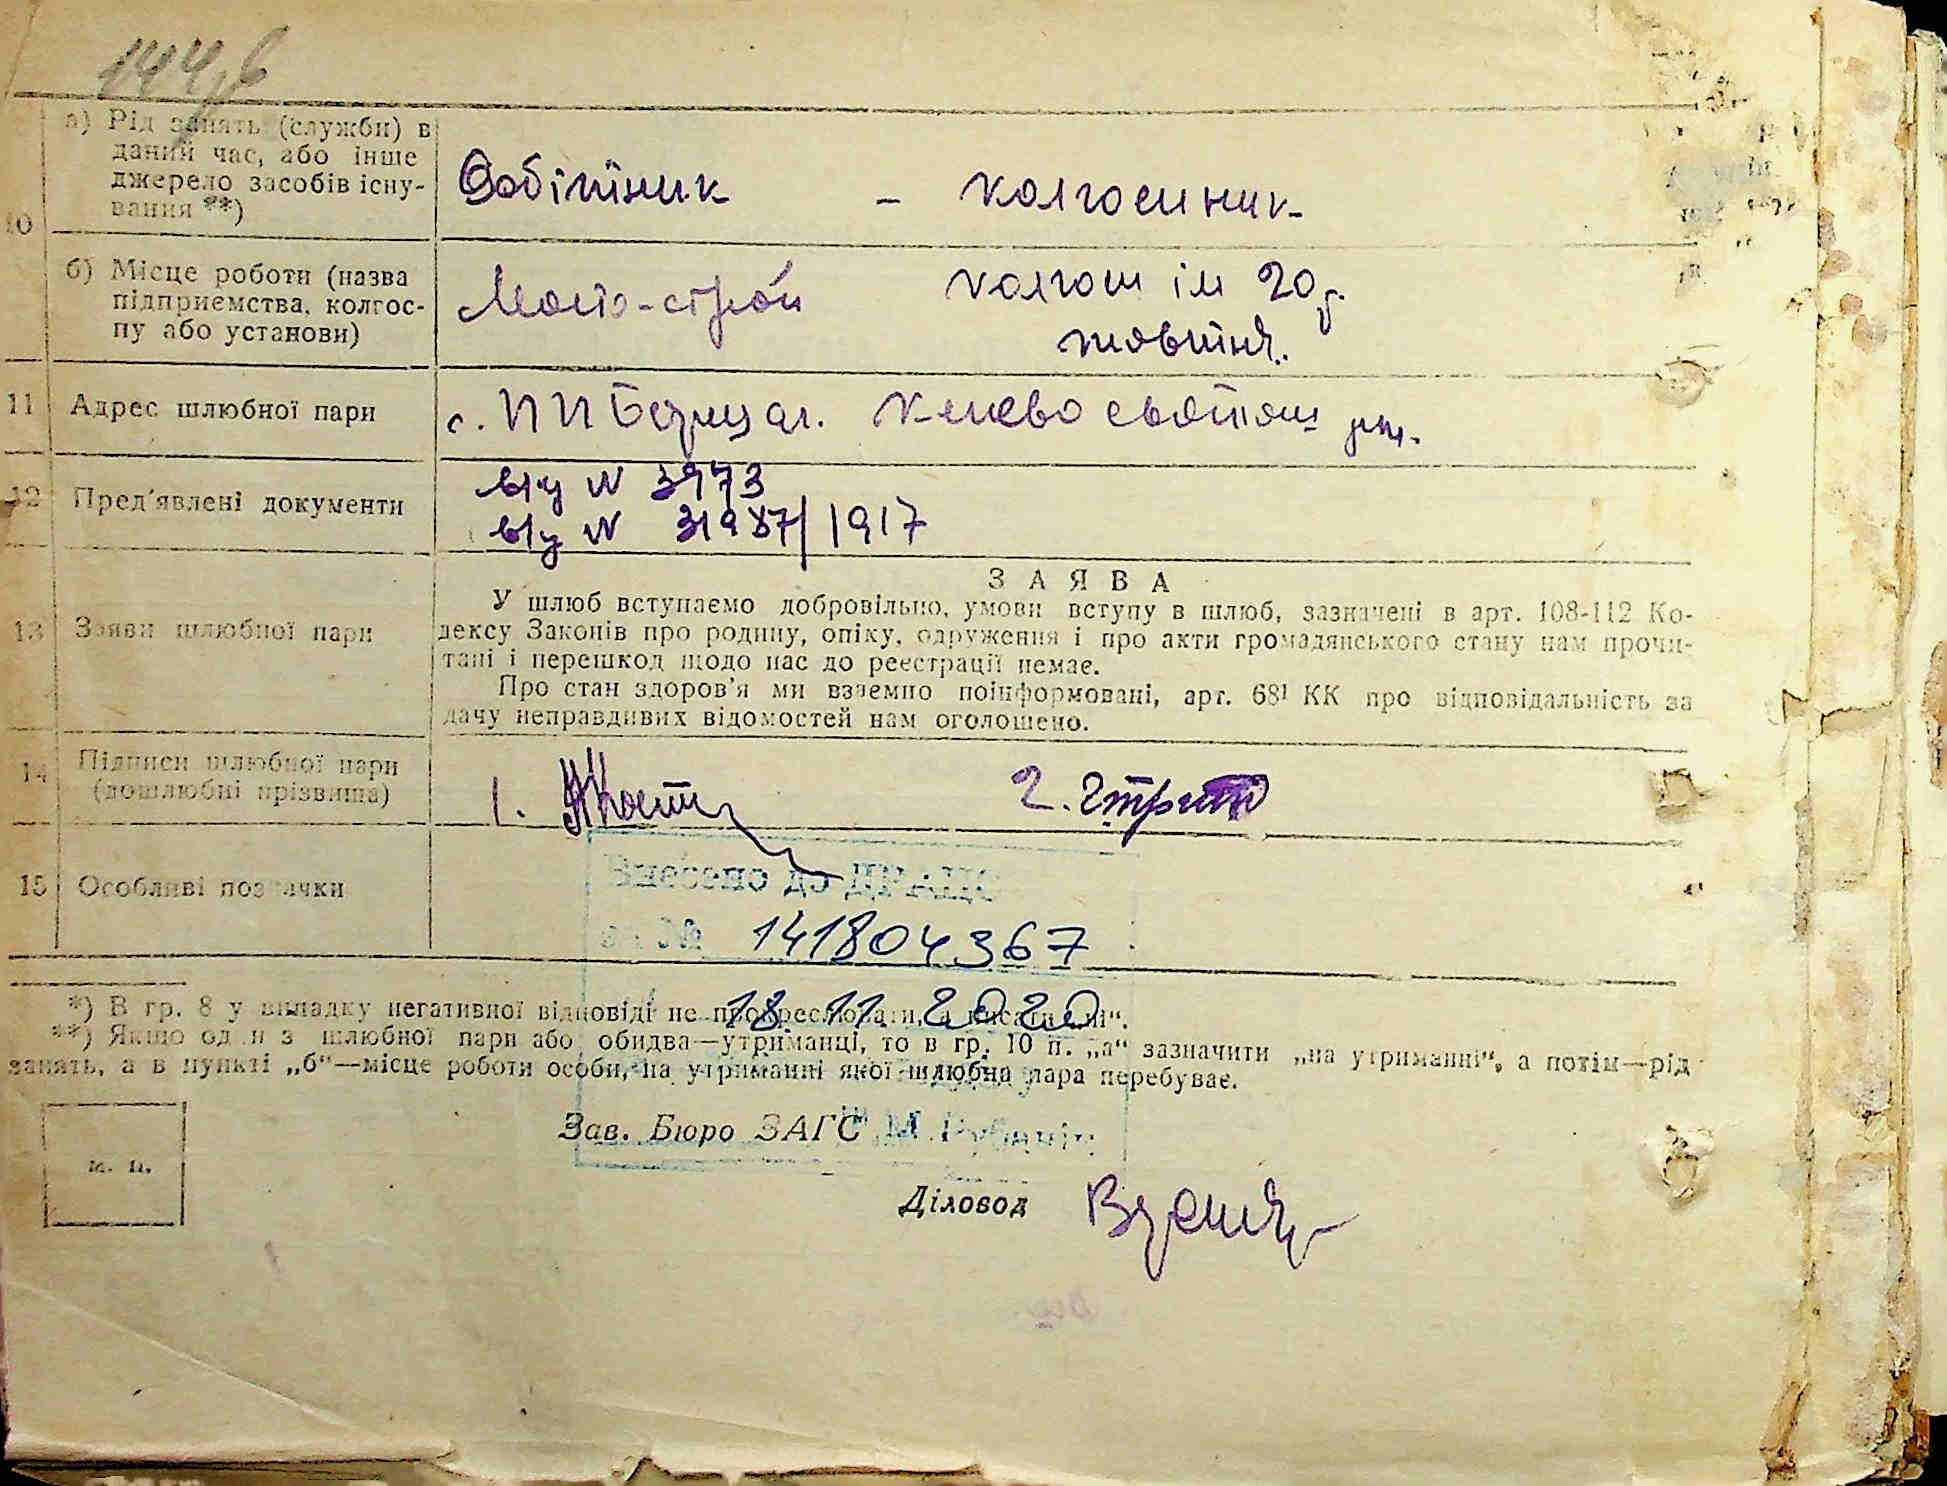 144,б
10
а) Рід занять (служби) в
даний час, або інше
джерело засобів існу-
вання **)
Робітник - колгоспник
б) Місце роботи (назва
підприємства, колгос-
пу або установи)
Мосто-строй колгосп ім 20 р.
жовтня.
11 Адрес шлюбної пари
с. ПП Борщаг. Києво святош
12 Пред'явлені документи
в/у N 3973
в/у N 31987/1917
13 Заяви шлюбної пари
ЗАЯВА
У шлюб вступаємо добровільно, умови вступу в шлюб, зазначені в арт. 108-112 Ко-
дексу Законів про родину, опіку, одруження і про акти громадянського стану нам прочи-
тані і перешкод щодо нас до реєстрації немає.
Про стан здоров'я ми взаємно поінформовані, арт. 68¹ КК про відповідальність за
дачу неправдивих відомостей нам оголошено.
14 Підписи шлюбної пари
(дошлюбні прізвища)
1. 2.
15 Особливі позначки
Внесено до ДРАЦС
за № 141804367
18.11.2020
*) В гр. 8 у випадку негативної відповіді не прокреслювати, а писати „ні“.
**) Якщо один з шлюбної пари або обидва—утриманці, то в гр. 10 п. „а“ зазначити „на утриманні“, а потім—рід
занять, а в пункті „б“—місце роботи особи, на утриманні якої шлюбна пара перебуває.
Зав. Бюро ЗАГС
м. п.
Діловод